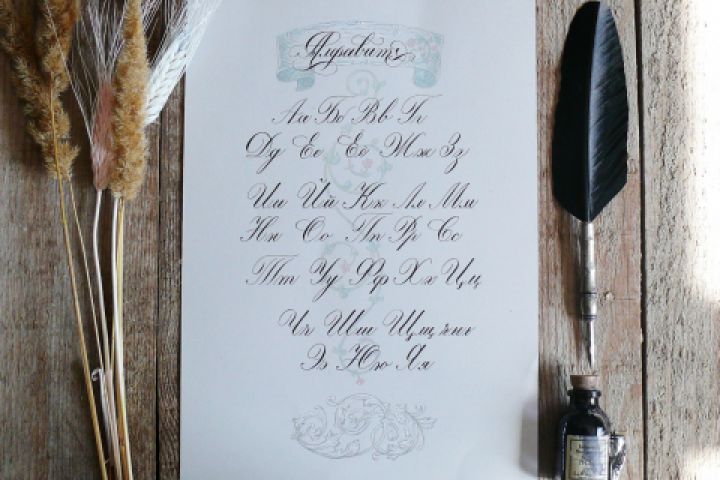 Алфавитъ
Аа Бб Вв Гг
Дд Ее Ёё Жж Зз
Ии Йй Кк Лл Мм
Нн Оо Пп Рр Сс
Тт Уу Фф Хх Цц
Чч Шш Щщ ъыь
Ээ Юю Яя